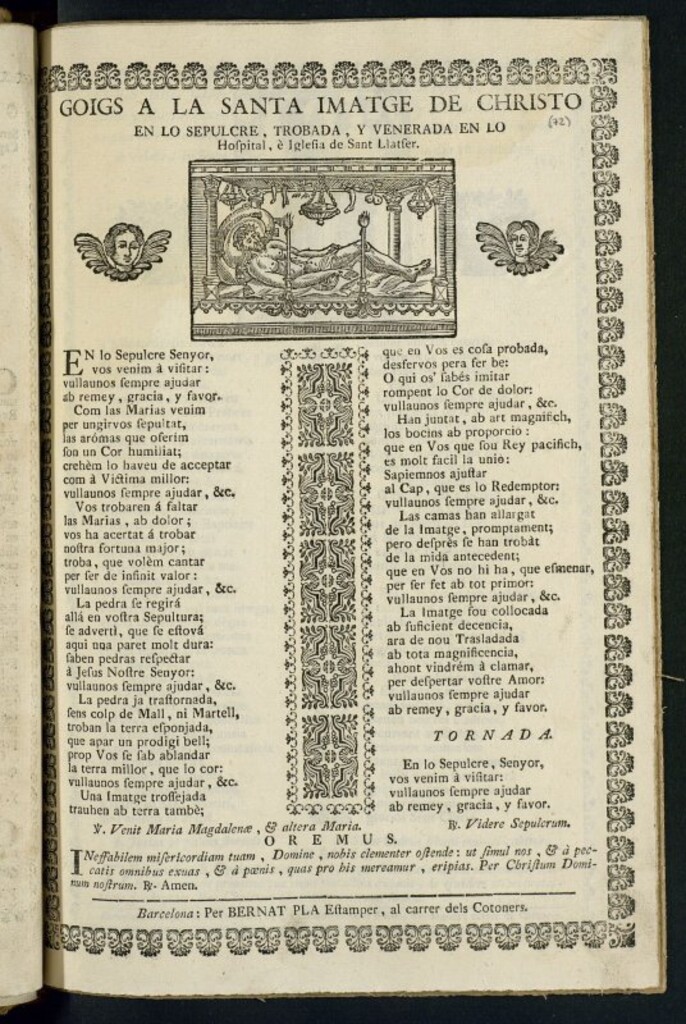 GOIGS A LA SANTA IMATGE DE CHRISTO
(72)
EN LO SEPULCRE, TROBADA, Y VENERADA EN LO
Hoſpital, è Igleſia de Sant Llatſer.
EN lo Sepulcre Senyor,
vos venim à viſitar:
vullaunos ſempre ajudar
ab remey, gracia, y favor.
Com las Marias venim
per ungirvos ſepultat,
las arómas que oferim
ſon un Cor humiliat;
crehèm lo haveu de acceptar
com à Victima millor:
vullaunos ſempre ajudar, &c.
Vos trobaren á faltar
las Marias, ab dolor;
vos ha acertat á trobar
noſtra fortuna major;
troba, que volèm cantar
per ſer de infinit valor:
vullaunos ſempre ajudar, &c.
La pedra ſe regirá
allá en voſtra Sepultura;
ſe advertí, que ſe eſtová
aqui una paret molt dura:
ſaben pedras reſpectar
à Jeſus Noſtre Senyor:
vullaunos ſempre ajudar, &c.
La pedra ja traſtornada,
ſens colp de Mall, ni Martell,
troban la terra eſponjada,
que apar un prodigi bell;
prop Vos ſe ſab ablandar
la terra millor, que lo cor:
vullaunos ſempre ajudar, &c.
Una Imatge troſſejada
trauhen ab terra tambè;
que en Vos es coſa probada,
desfervos pera ſer be:
O qui os' ſabés imitar
rompent lo Cor de dolor:
vullaunos ſempre ajudar, &c.
Han juntat, ab art magnifich,
los bocins ab proporcio:
que en Vos que ſou Rey pacifich,
es molt facil la unio:
Sapiemnos ajuſtar
al Cap, que es lo Redemptor:
vullaunos ſempre ajudar, &c.
Las camas han allargat
de la Imatge, promptament;
pero deſprès ſe han trobàt
de la mida antecedent;
que en Vos no hi ha, que eſmenar,
per ſer fet ab tot primor:
vullaunos ſempre ajudar, &c.
La Imatge fou collocada
ab ſuficient decencia,
ara de nou Trasladada
ab tota magnificencia,
ahont vindrém à clamar,
per deſpertar voſtre Amor:
vullaunos ſempre ajudar
ab remey, gracia, y favor.
TORNADA.
En lo Sepulcre, Senyor,
vos venim à viſitar:
vullaunos ſempre ajudar
ab remey, gracia, y favor.
℣. Venit Maria Magdalenæ, & altera Maria. ℟. Videre Sepulcrum.
OREMUS.
INeffabilem miſericordiam tuam, Domine, nobis clementer oſtende: ut ſimul nos, & à pec-
catis omnibus exuas, & à pœnis, quas pro his mereamur, eripias. Per Chriſtum Domi-
num noſtrum. ℟. Amen.
Barcelona: Per BERNAT PLA Eſtamper, al carrer dels Cotoners.